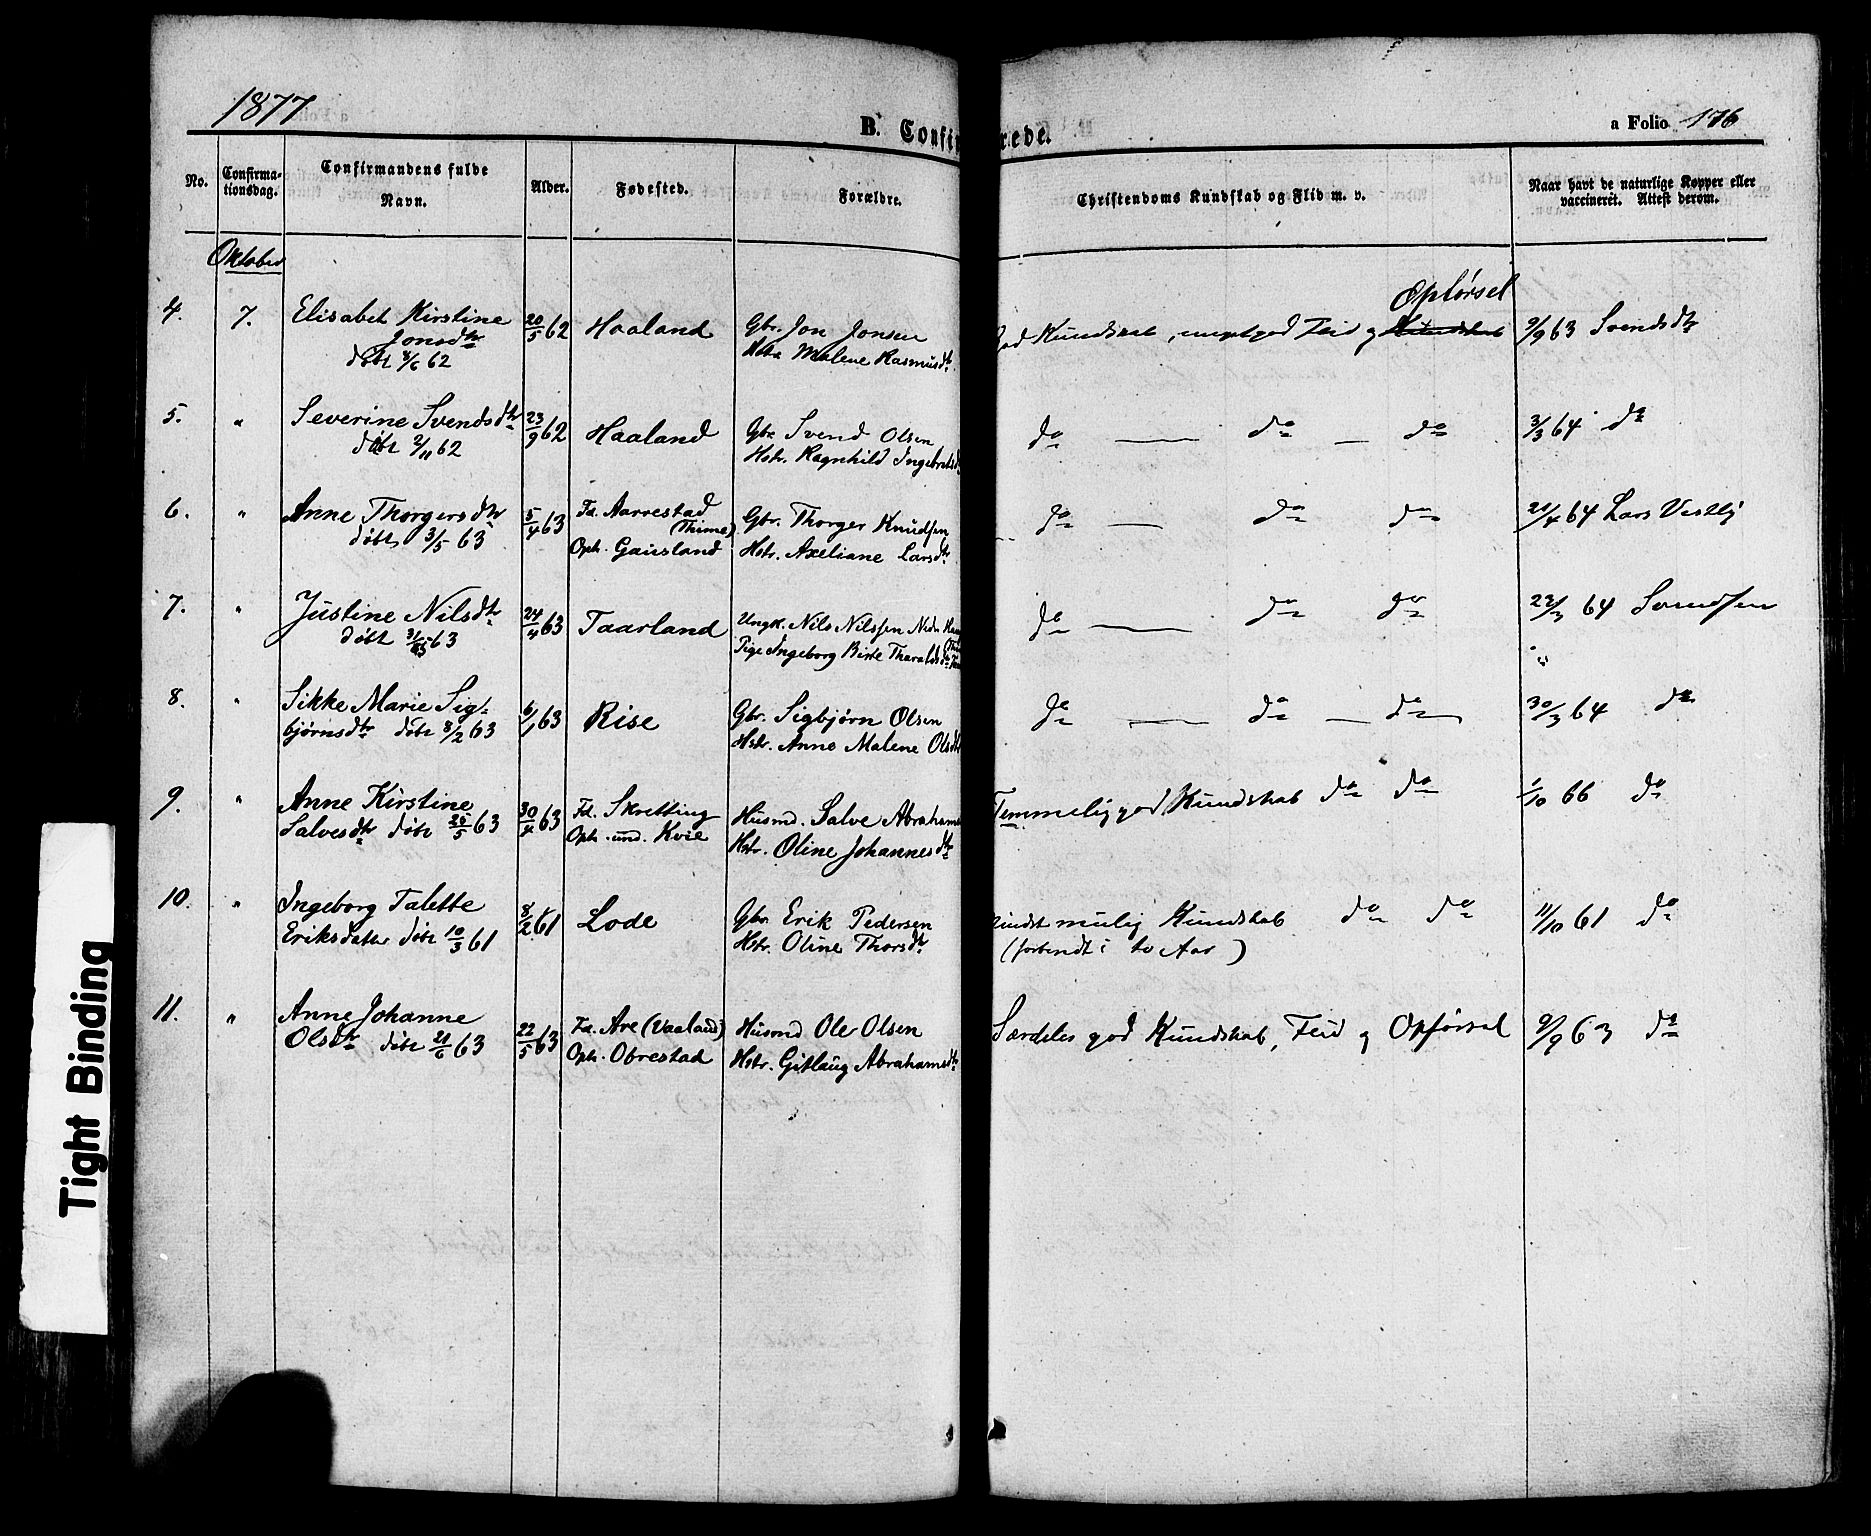 1877
B. Confir rede.
a Folio 176
No. Confirma-tionsdag. Confirmandens fulde Navn. Alder. Fødested. Forældre. Christendoms Kundskab og Flid m. v. Naar havt de naturlige Kopper eller vaccineret. Attest derom.
Oktober
Opførsel
4. 7. Elisabet Kirstine 20/5 62 Haaland Gbr. Jon Jonsen god Kundskab, meget god Flid og Kundskab 9/9 63 Svendsdtr
Jonsdtr Hstr Malene Rasmusdtr.
døbt 3/6 62
5. " Severine Svendsdtr 23/9 62 Haaland Gbr. Svend Olsen do — do — do 3/3 64 do
døbt 2/11 62 Hstr. Ragnhild Ingebretsd
6. " Anne Thorgersdtr 5/4 63 Fd. Aarrestad Gbr. Thorger Knudsen do — do do 21/4 64 Lars Vestly
(Thime)
døbt 3/5 63 Oph. Gausland Hstr. Axeliane Larsdtr.
7. " Justine Nilsdtr 24/4 63 Taarland Ungk. Nils Nilssen Nedr. do — do do 23/3 64 Svendsen
døbt 31/5 63 Pige Ingeborg Birte Tharaldsdtr "
8. " Sikke Marie Sig- 6/1 63 Rise Gbr. Sigbjørn Olsen do — do — do 30/3 64 do
bjørnsdtr døbt 8/2 63 Hstr. Anne Malene Olsdtr
9. " Anne Kirstine 30/4 63 Fd. Skretting Husmd. Salve Abrahams Temmelig god Kundskab do do 1/10 66 do
Salvesdtr døbt 25/5 63 Oph. und. Kvie Hstr. Oline Johannesdtr
10. " Ingeborg Talette 8/2 61 Lode Gbr. Erik Pedersen mindst mulig Kundskab do do 11/10 61 do
Eriksdatter døbt 10/3 61 Hstr. Oline Thorsdtr. (forbendt i to Aar)
11. " Anne Johanne 22/5 63 Fd. Are (Vaaland) Husmd Ole Olsen Særdeles god Kundskab, Flid og Opførsel 9/9 63 do
Olsdtr døbt 21/6 63 Oph. Obrestad Hstr. Gitlaug Abrahamsdtr
Tight Binding